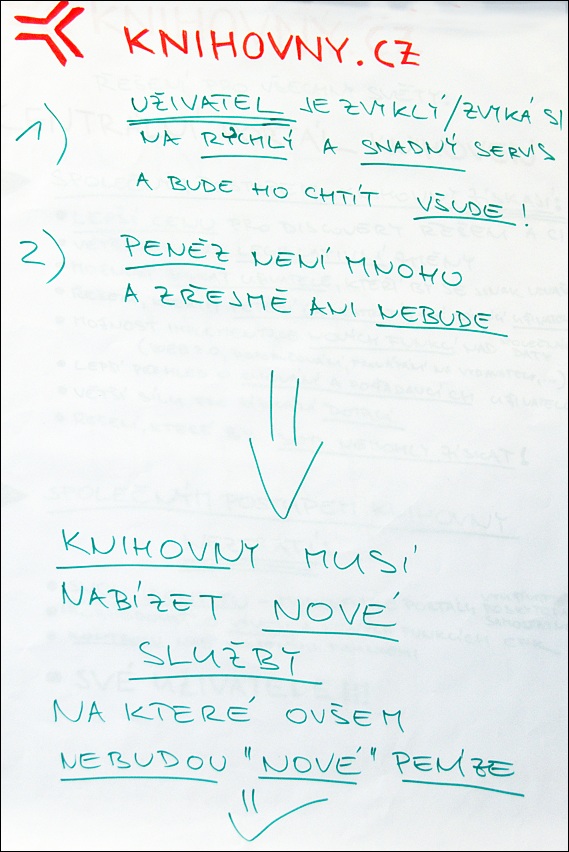 KNIHOVNY.CZ
1) UŽIVATEL JE ZVYKLÝ/ZVYKÁ SI
NA RYCHLÝ A SNADNÝ SERVIS
A BUDE HO CHTÍT VŠUDE!
2) PENĚZ NENÍ MNOHO
A ZŘEJMĚ ANI NEBUDE
KNIHOVNY MUSÍ
NABÍZET NOVÉ
SLUŽBY
NA KTERÉ OVŠEM
NEBUDOU "NOVÉ" PENÍZE